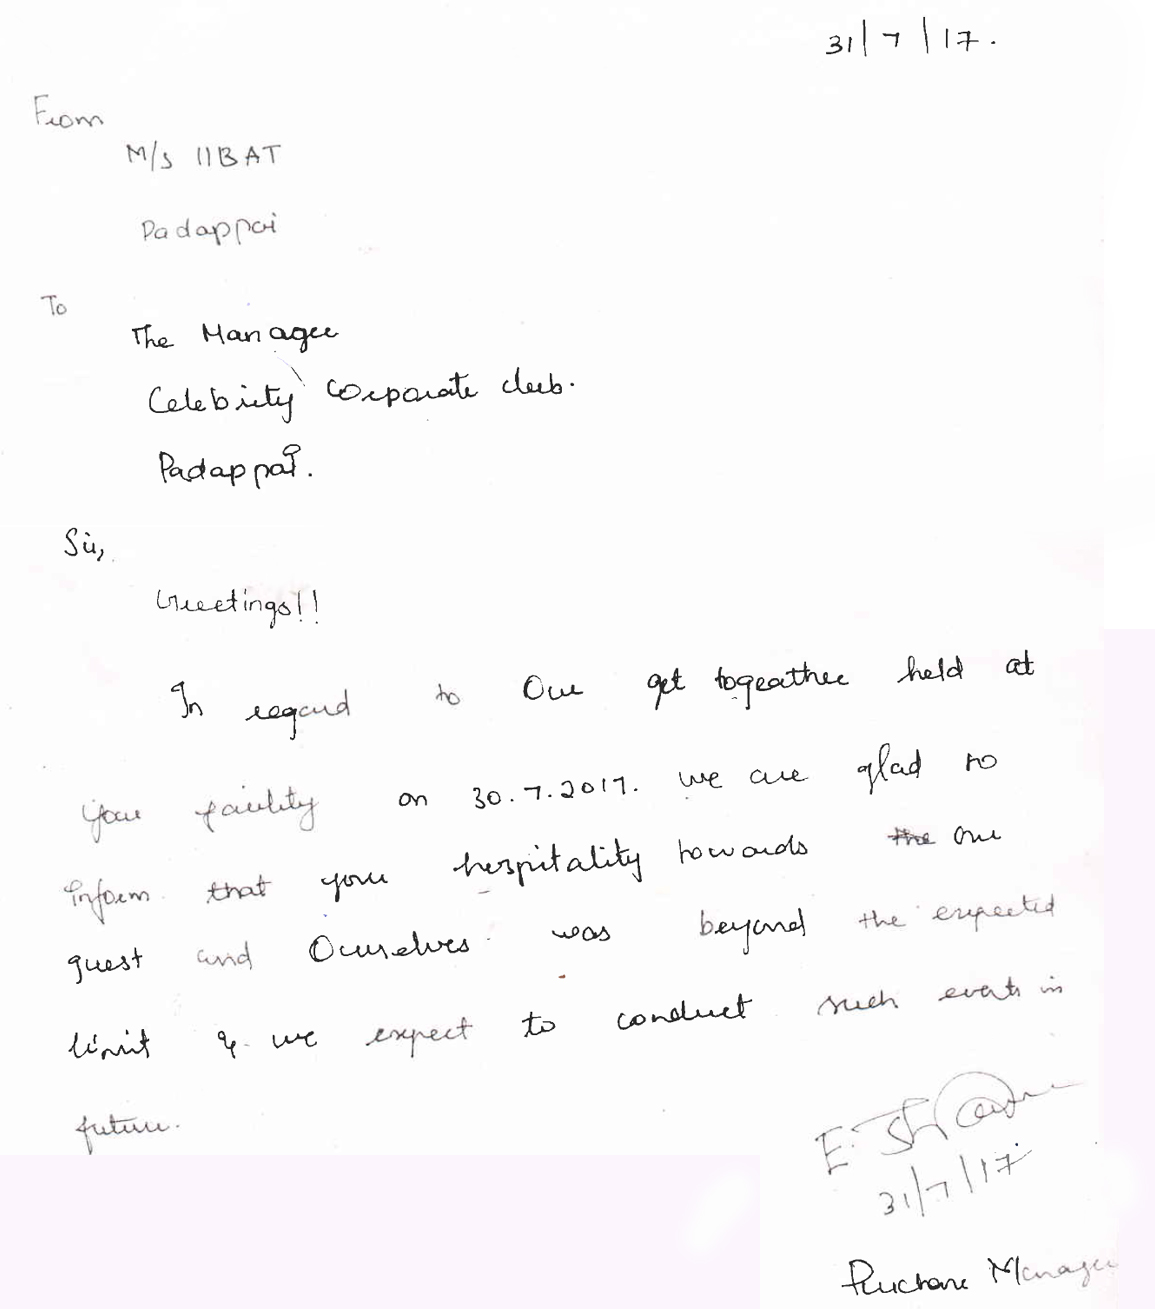 31/7/17.
From
M/s IIBAT
Padappai
To
The Manager
Celebrity Corporate club.
Padappai.
Sir,
Greetings!!
In regard to Our get togeather held at
your facility on 30.7.2017. we are glad to
inform that your hospitality towards the our
guest and Ourselves was beyond the expected
limit & we expect to conduct such events in
future.
E.
31/7/17
Purchase Manager